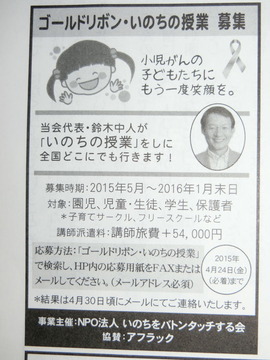 ゴールドリボン・いのちの授業 募集
小児がんの
子どもたちに
もう一度笑顔を。
当会代表・鈴木中人が
「いのちの授業」をしに
全国どこにでも行きます！
募集時期：2015年5月～2016年1月末日
対象：園児、児童・生徒、学生、保護者
＊子育てサークル、フリースクールなど
講師派遣料：講師旅費＋54,000円
応募方法：「ゴールドリボン・いのちの授業」
で検索し、HP内の応募用紙をFAXまたは
メールしてください。（メールアドレス必須）
2015年
4月24日(金)
(必着)まで
＊結果は4月30日頃にメールにてご連絡いたします。
事業主催：NPO法人 いのちをバトンタッチする会
協賛：アフラック